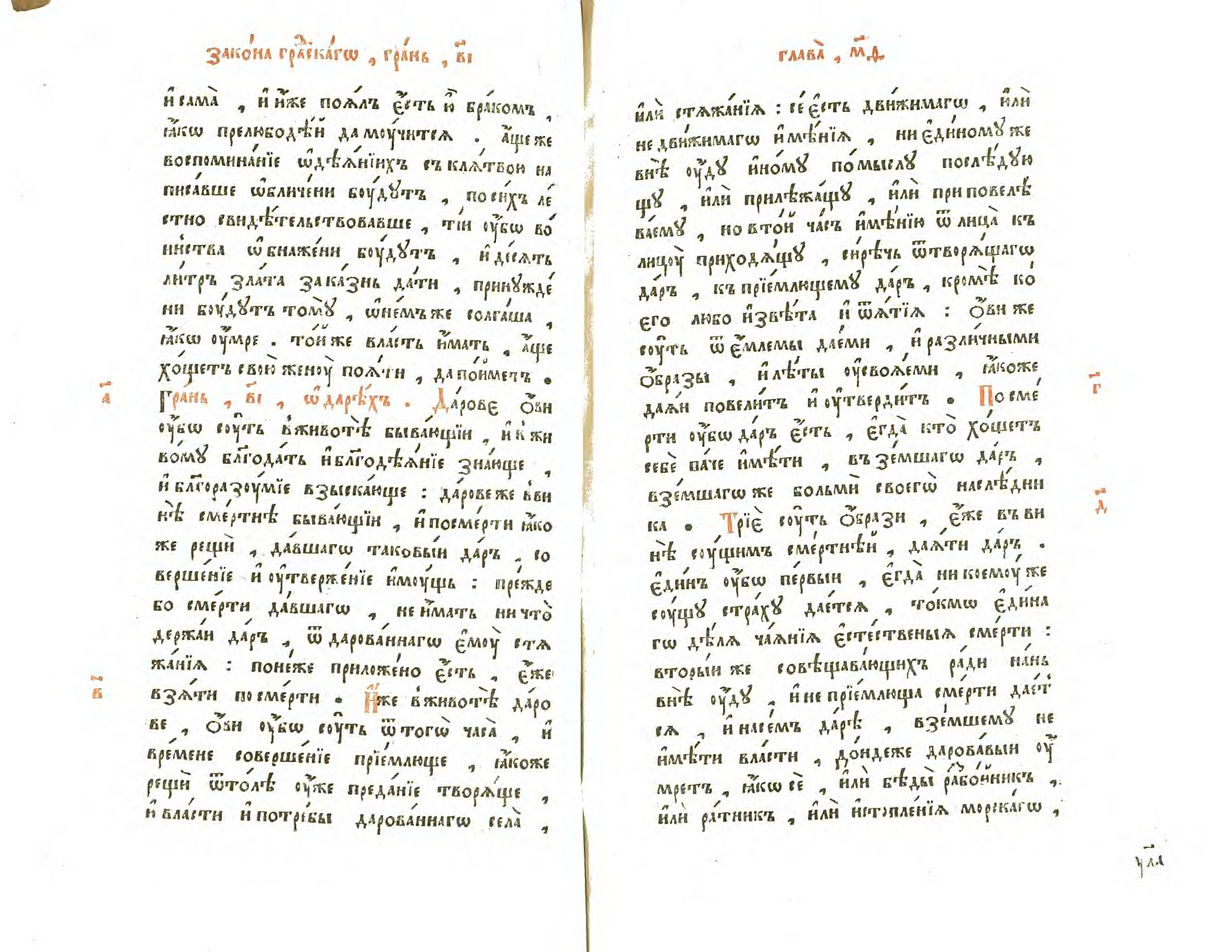 Зако́на гра́дскагѡ , гра́нь , в҃і
и҆ сама̀ , и҆ и҆́же поѧ́лъ є҆́сть ю҆̀ бра́комъ ,
ꙗ҆́кѡ прелюбодѣ́й да моу́читсѧ . а҆́ще же
воспомина́нїе ѡ҆дѣѧ́нїихъ съ клѧ́твою на
писа́вше ѡ҆бличе́ни боу́дꙋтъ , по си́хъ ле́
стно свидѣ́тельствовавше , ті́и ᲂу҆́бѡ во́
инства ѡ҆бнаже́ни боу́дꙋтъ , и҆ де́сѧть
ли́тръ зла́та за ка́знь да́ти , принꙋжде́
ни боу́дꙋтъ томꙋ̀ , ѡ҆не́мъ же солга́ша ,
ꙗ҆́кѡ ᲂу҆́мре . то́й же вла́сть и҆́мать , а҆́ще
хо́щетъ свою̀ женоу̀ поѧ́ти , да по́йметъ .
а҃
Гра́нь , в҃і , ѡ҆ даре́хъ . Да́рове ѻ҆́ви
ᲂу҆́бѡ соу́ть в̾животѣ̀ быва́ющїи , и҆ к̾жи
во́мꙋ блг҃ода́ть и҆ блг҃одѣѧ́нїе зна́юще ,
и҆ блг҃оразоу́мїе взыска́юще : да́рове же в̾ви
нѣ̀ сме́ртнѣ быва́ющїи , и҆ по сме́рти ꙗ҆́ко
же рещѝ , да́вшагѡ таковы́и да́ръ , со
верше́нїе и҆ ᲂу҆тверже́нїе и҆моу́щь : пре́жде
бо сме́рти да́вшагѡ , не и҆́мать ничто̀
держа́и да́ръ , ѿ дарова́ннагѡ є҆моу̀ стѧ
жа́нїѧ : поне́же приложе́но є҆́сть , є҆́же
в҃
взѧ́ти по сме́рти . И҆́же в̾животѣ̀ да́ро
ве , ѻ҆́ви ᲂу҆́бѡ соу́ть ѿ тогѡ̀ ча́са , и҆
вре́мене соверше́нїе прїе́млюще , ꙗ҆́коже
рещѝ ѿто́лѣ ᲂу҆́же преда́нїе творѧ́ще ,
и҆ вла́сти и҆ потре́бы дарова́ннагѡ села̀ ,
глава̀ , м҃д
и҆лѝ стѧжа́нїѧ : се́ є҆сть дви́жимагѡ , и҆лѝ
недви́жимагѡ и҆мѣ́нїѧ , ни є҆ди́номꙋ же
внѣ̀ ᲂу҆́дꙋ и҆но́мꙋ по́мыслꙋ послѣ́дꙋю
щꙋ , и҆лѝ прилѣжа́щꙋ , и҆лѝ приповелѣ
ва́емꙋ , но в то́й ча́съ и҆мѣ́нїю ѿ лица̀ къ
лицоу̀ приходѧ́щꙋ , си́рѣчь ѿ творѧ́щагѡ
да́ръ , къ прїе́млющемꙋ да́ръ , кро́мѣ ко́
его любо и҆звѣ́та и҆ ѿѧ́тїѧ : ѻ҆́ви же
соу́ть ѿ є҆́млемы дае́ми , и҆ разли́чными
ѻ҆́бразы , и҆ лѣ́ты ᲂу҆своѧ́еми , ꙗ҆́коже
г҃
даѧ́и повели́тъ и҆ ᲂу҆тверди́тъ . По сме́
рти ᲂу҆́бѡ да́ръ є҆́сть , є҆гда̀ кто̀ хо́щетъ
себѐ па́че и҆мѣ́ти , въземшагѡ да́ръ ,
взе́мшагѡ же бо́льми своегѡ̀ наслѣ́дни
д҃
ка . Трїѐ соу́ть ѻ҆́брази , є҆́же въ ви
нѣ̀ соу́щимъ сме́ртнѣй , даѧ́ти да́ръ .
є҆ди́нъ ᲂу҆́бѡ пе́рвыи , є҆гда̀ ни коемоу́ же
соу́щꙋ стра́хꙋ дае́тсѧ , то́кмѡ є҆ди́на
гѡ дѣ́лѧ ча́ѧнїѧ є҆сте́ственыѧ сме́рти :
вторы́и же совѣщава́ющихъ ра́ди на́нь
внѣ̀ ᲂу҆́дꙋ , и҆ не прїе́млюща сме́рти дае́т
сѧ , и҆ на се́мъ да́рѣ , взе́мшемꙋ не
и҆мѣ́ти вла́сти , до́ндеже дарова́выи ᲂу҆́
мретъ , ꙗ҆́кѡ сѐ , и҆лѝ бѣды̀ разбо́йникъ ,
и҆лѝ ра́тникъ , и҆лѝ и҆стопле́нїѧ морска́гѡ ,
ул҃а